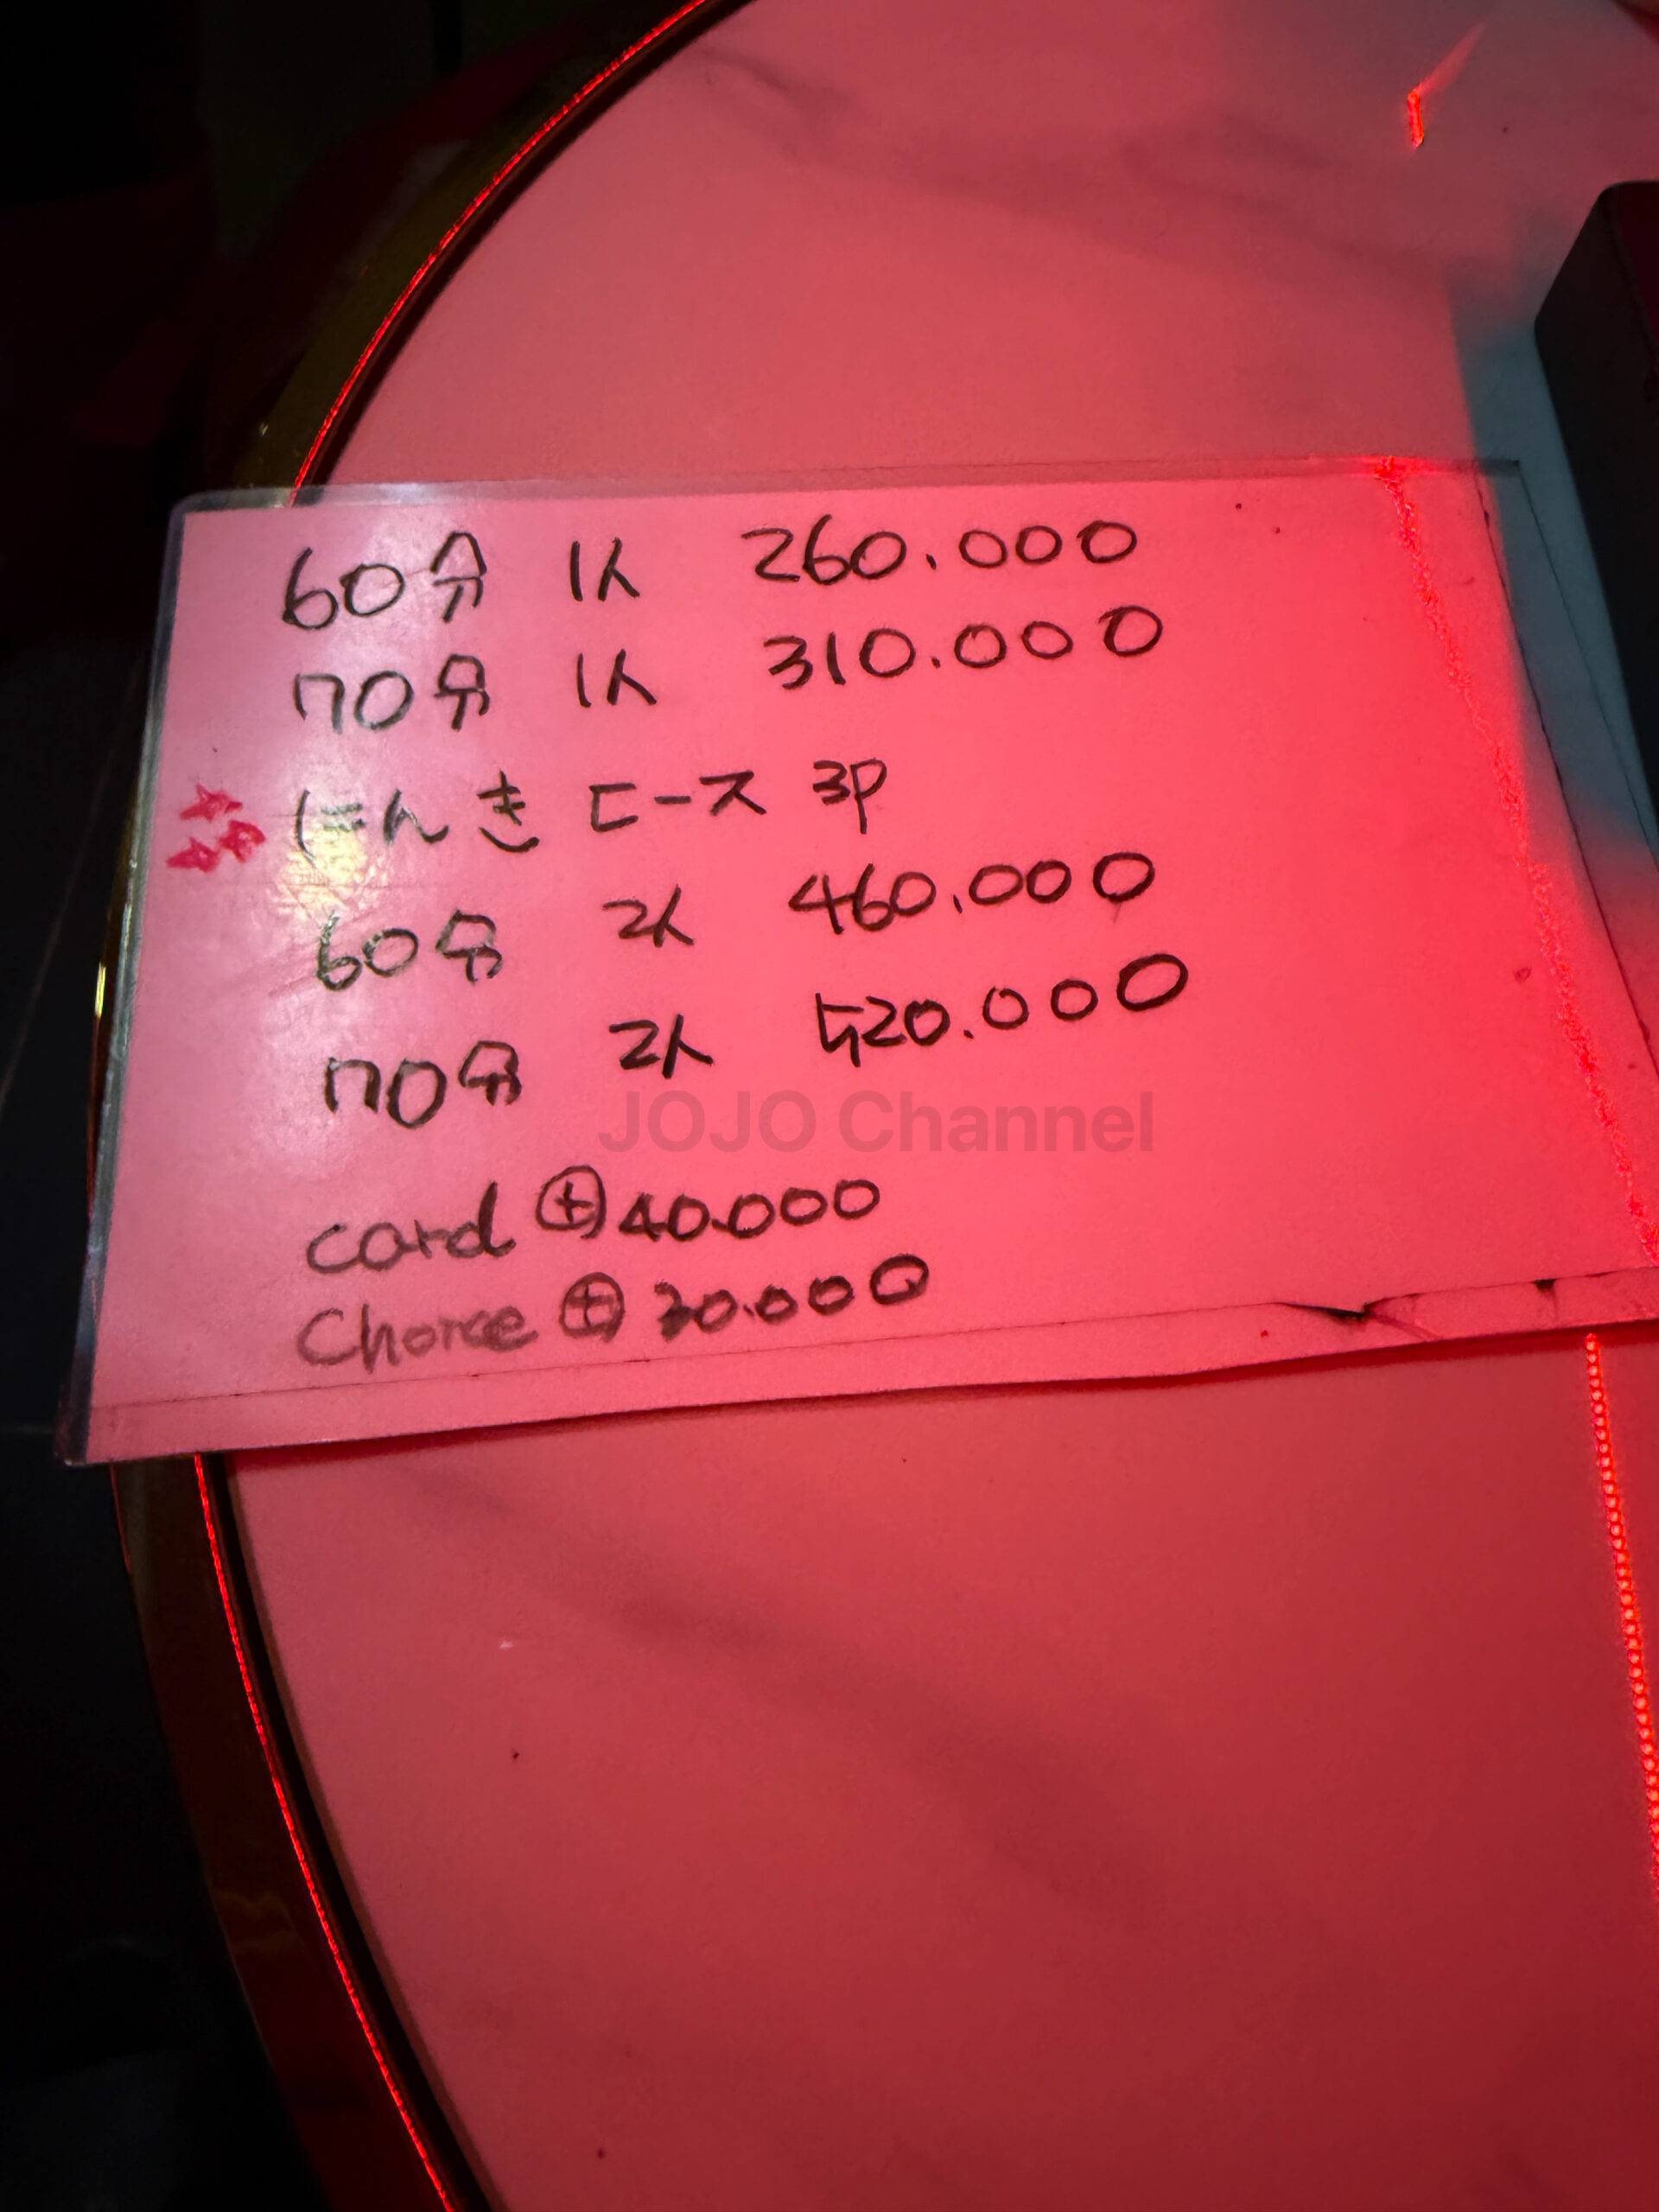 60分 1人 260.000
70分 1人 310.000
にんき コース 3P
60分 2人 460.000
70分 2人 520.000
JOJO Channel
card ⊕ 40.000
Choice ⊕ 30.000